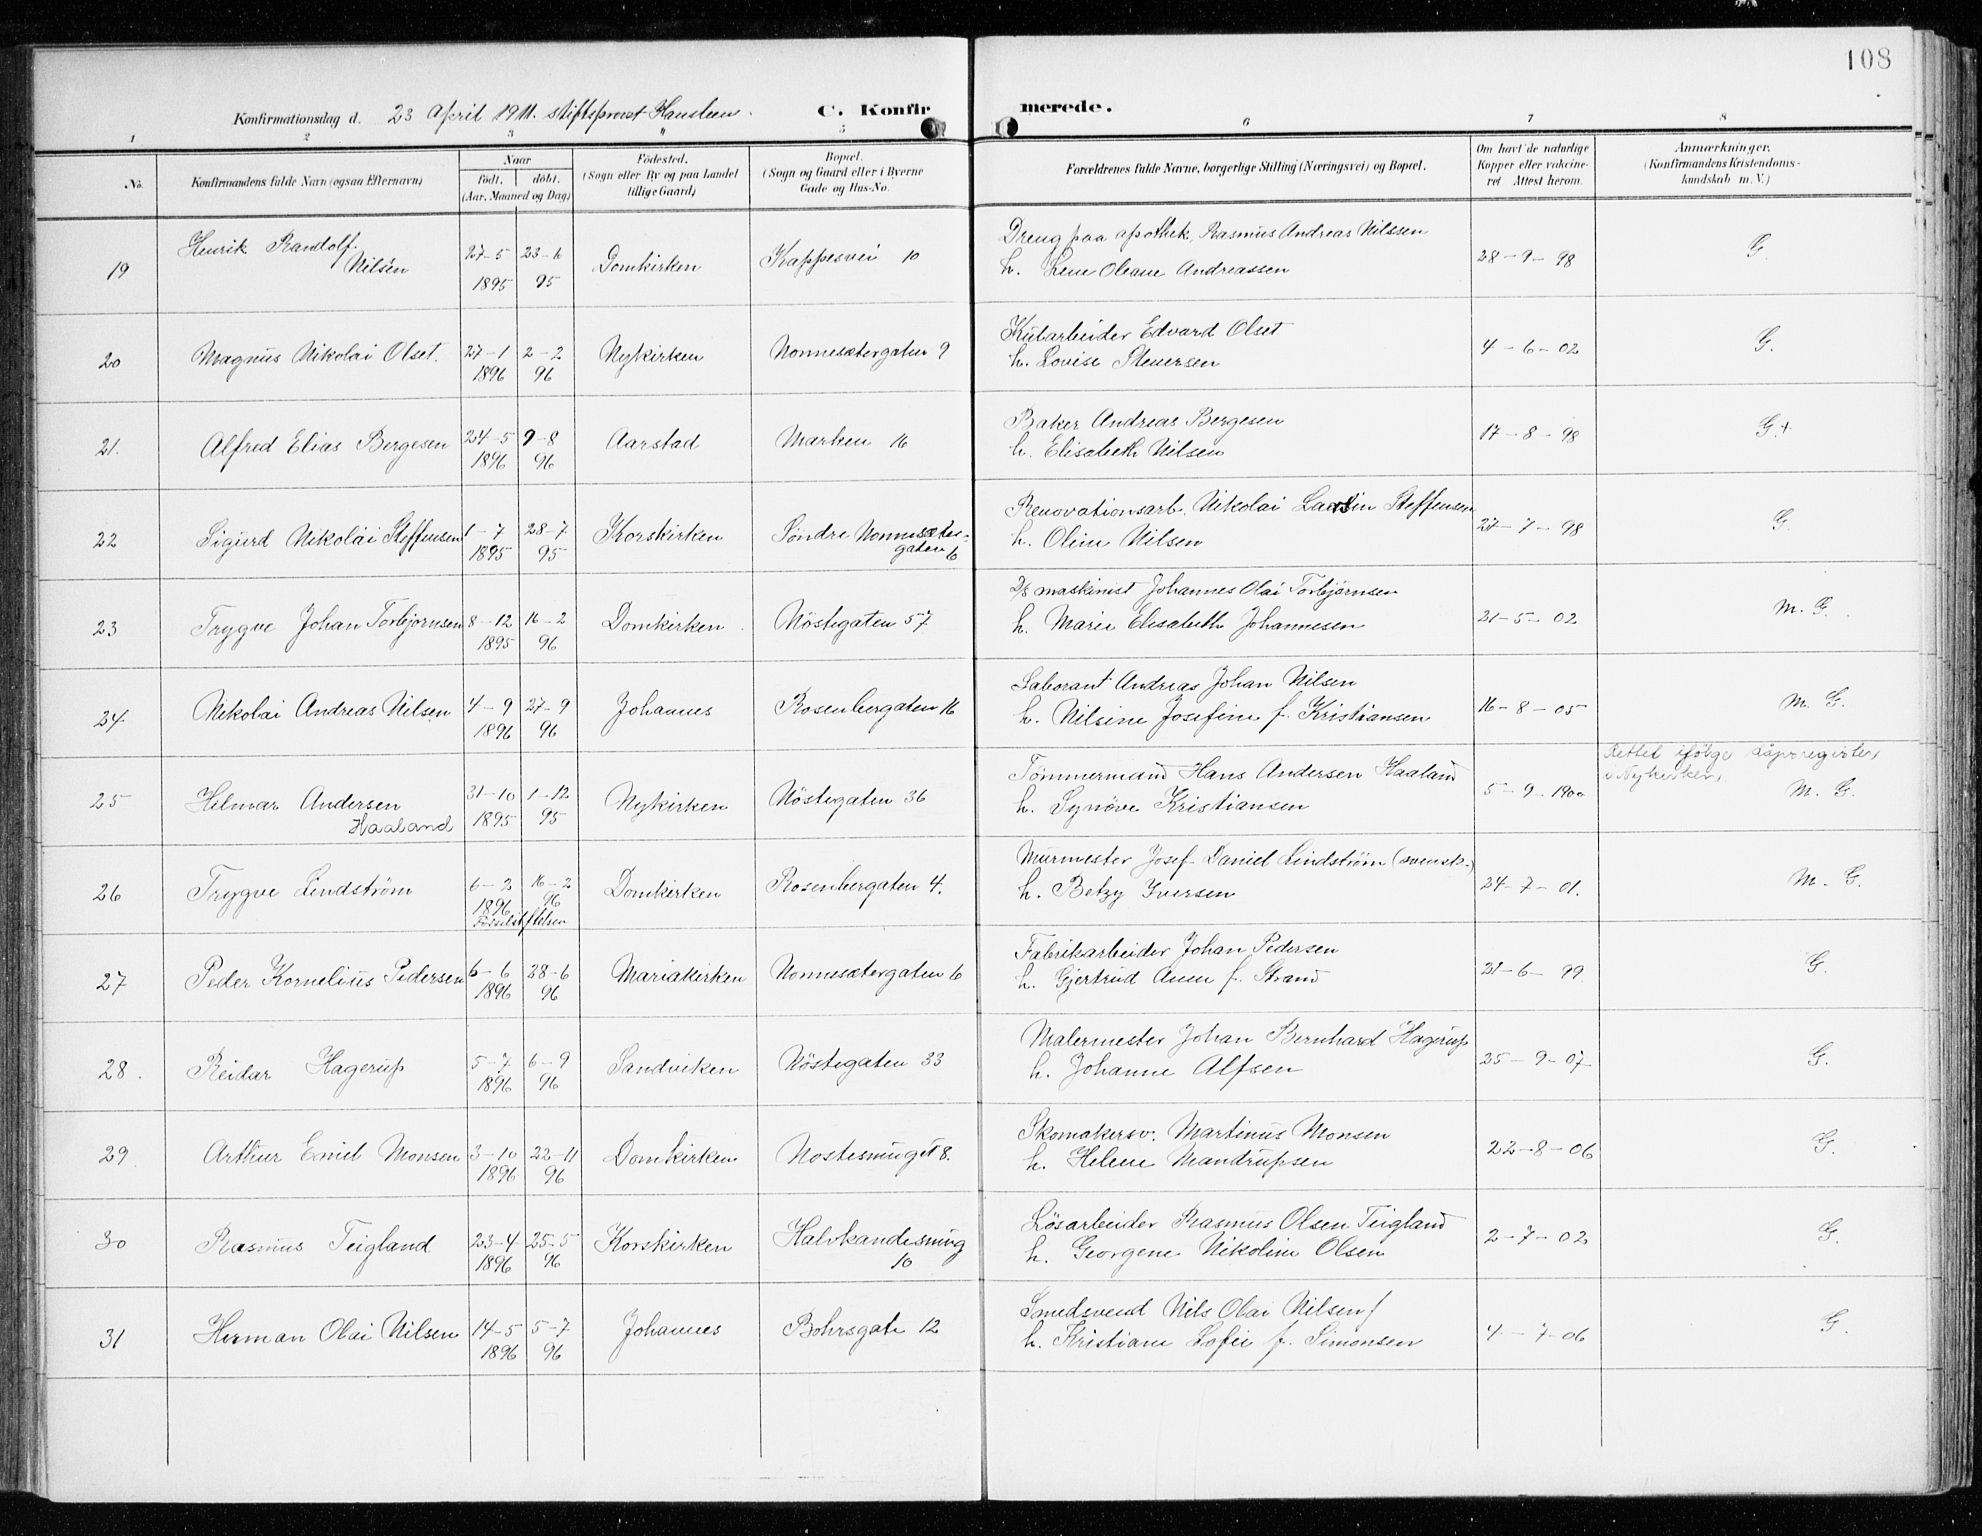 108
Konfirmationsdag d. 23 April 1911. stiftsprovst Hansteen.
C. Konfirmerede.
1 2 3 4 5 6 7 8
No.
Konfirmandens fulde Navn (ogsaa Efternavn)
Naar
født. døbt.
(Aar, Maaned og Dag)
Fødested.
(Sogn eller By og paa Landet
tillige Gaard)
Bopæl.
(Sogn og Gaard eller i Byerne
Gade og Hus-No.
Forældrenes fulde Navne, borgerlige Stilling (Næringsvei) og Bopæl.
Om havt de naturlige
Kopper eller vakcine-
ret Attest herom.
Anmærkninger.
(Konfirmandens Kristendoms-
kundskab m. V.)
19 Henrik Randolf 27-5 23-6 Domkirken Kappesvei 10 Dreng paa apothek, Rasmus Andreas Nilssen 28-9-98 G.
Nilsen 1895 95 h. Lene Oleane Andreassen
20 Magnus Nikolai Olset. 27-1 2-2 Nykirken Nonnesætergaten 9 Kularbeider Edvard Olset 4-6-02 G.
1896 96 h. Lovise Stenersen
21. Alfred Elias Bergesen 24-5 9-8 Aarstad Marken 16 Baker Andreas Bergesen 17-8-98 G.+
1896 96 h. Elisabeth Nilsen
22 Sigurd Nikolai Steffensen 1-7 28-7 Korskirken Søndre Nonnesæter- Renovationsarb. Nikolai Steffensen 27-7-98 G.
1895 95 gaten 6 h. Oline Nilsen
23 Trygve Johan Torbjørnsen 8-12 16-2 Domkirken Nöstegaten 57 D/s maskinist Johannes Olai Torbjørnsen 21-5-02 M. G.
1895 96 h. Marie Elisabeth Johannesen
24 Nikolai Andreas Nilsen 4-9 27-9 Johannes Rosenbergaten 16 Laborant Andreas Johan Nilsen 16-8-05 M. G.
1896 96 h. Nilsine Josefine f. Kristiansen
Rettet ifølge
i Nykirken,
25 Hilmar Andersen 31-10 1-12 Nykirken Nöstegaten 36 Tömmermand Hans Andersen Haaland 5-9-1900 M. G.
Haaland 1895 95 h. Synöve Kristiansen
26 Trygve Lindström 6-2 16-2 Domkirken Rosenbergaten 4. Murmester Josef Daniel Lindström (svensk.) 24-7-01. M. G.
1896 96 h. Betzy Iversen
Fødselstiftelsen
27 Peder Kornelius Pedersen 6-6 28-6 Mariakirken Nonnesætergaten 6 Fabrikarbeider Johan Pedersen 21-6-99 G.
1896 96 h. Gjertrud Anne f. Strand
28. Reidar Hagerup 5-7 6-9 Sandviken Nöstegaten 33 Malermester Johan Bernhard Hagerup 25-9-07 G.
1896 96 h. Johanne Alfsen
29 Arthur Emil Monsen 3-10 22-11 Domkirken Nostesmuget 8. Skomakersv. Martinus Monsen 22-8-06 G.
1896 96 h. Helene Mandrupsen
30 Rasmus Teigland 23-4 25-5 Korskirken Halvkandesmug Lösarbeider Rasmus Olsen Teigland 2-7-02 G.
1896 96 10 h. Georgene Nikoline Olsen
31 Herman Olai Nilsen 14-5 5-7 Johannes Bohrsgate 12 Smedsvend Nils Olai Nilsen 4-7-06 G.
1896 96 h. Kristiane Sofie f. Simonsen